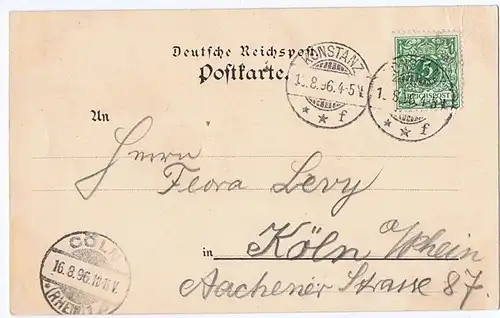 Deutsche Reichspost.
Postkarte.
KONSTANZ
8.96.4-5
* * f
* * f
5
REICHSPOST
An
Herrn
Flora Levy
in Köln a/Rhein
Aachener Strasse 87.
CÖLN
16.8.96.
(RHEIN)